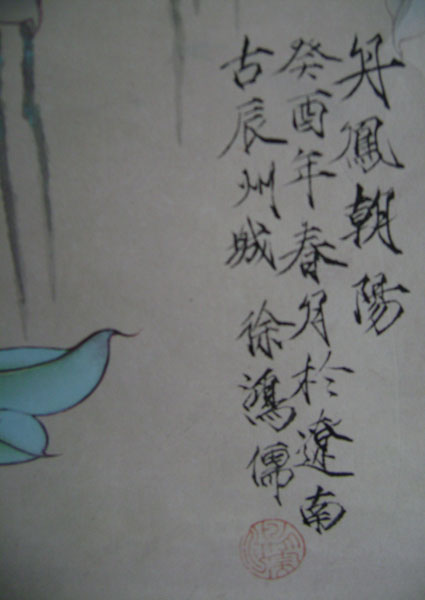 丹鳳朝陽
癸酉年春月於遼南
古辰州城 徐鴻儒